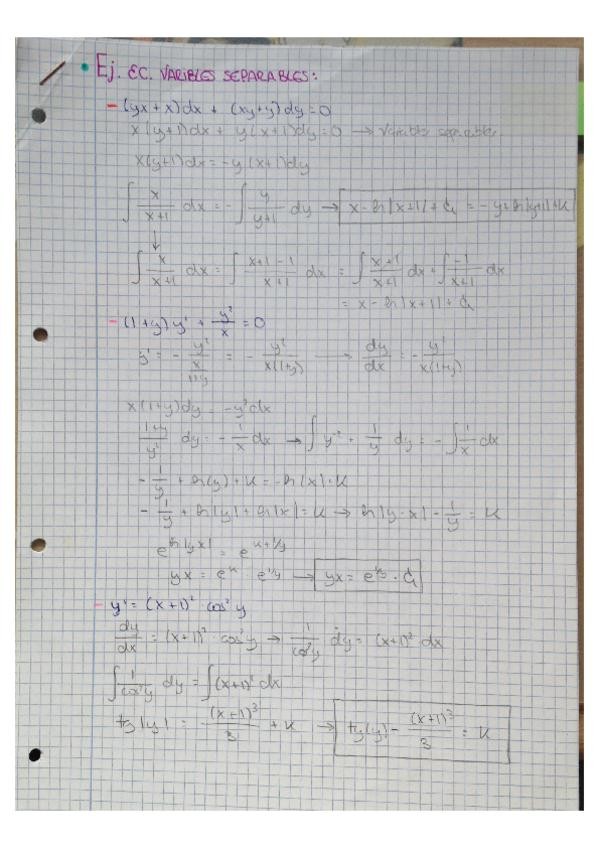 Ej. EC. VARIBLES SEPARABLES:
- (yx + x) dx + (xy + y) dy = 0
x (y+1) dx + y (x+1) dy = 0 → Variables separables
x(y+1) dx = -y (x+1) dy
∫ x/(x+1) dx = -∫ y/(y+1) dy → x - ln|x+1| + C₁ = -y + ln|y+1| + K
∫ x/(x+1) dx = ∫ (x+1-1)/(x+1) dx = ∫ (x+1)/(x+1) dx + ∫ -1/(x+1) dx
= x - ln|x+1| + C₁
- (1+y) y' + y²/x = 0
y' = - (y²/x)/(1+y) = - y²/(x(1+y)) → dy/dx = - y²/(x(1+y))
x(1+y) dy = -y² dx
(1+y)/y² dy = - 1/x dx → ∫ y⁻² + 1/y dy = - ∫ 1/x dx
- 1/y + ln(y) + K = -ln|x| + K
- 1/y + ln|y| + ln|x| = K → ln|y·x| - 1/y = K
e^(ln|yx|) = e^(K+1/y)
yx = e^K · e^(1/y) → yx = e^(1/y) · C₁
- y' = (x+1)² · cos²y
dy/dx = (x+1)² · cos²y → 1/cos²y dy = (x+1)² dx
∫ 1/cos²y dy = ∫ (x+1)² dx
tg|y| = (x+1)³/3 + K → tg(y) - (x+1)³/3 = K